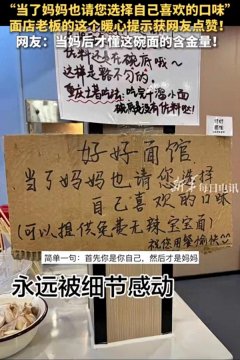 “当了妈妈也请您选择自己喜欢的口味”
面店老板的这个暖心提示获网友点赞！
网友：当妈后才懂这碗面的含金量！
好好面馆
当了妈妈也请您选择
自己喜欢的口味
(可以提供免费无辣宝宝面)
祝您用餐愉快
新华每日电讯
简单一句：首先你是你自己，然后才是妈妈
永远被细节感动